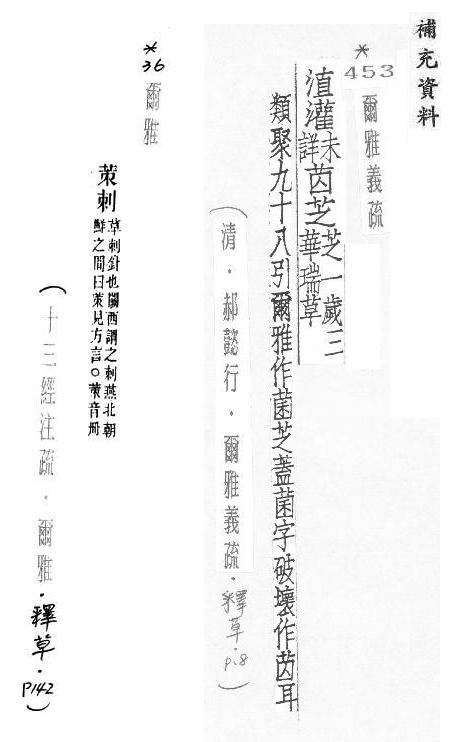 補充資料
*
453
爾雅義疏
淔灌未詳苬芝芝一歲三華瑞草
類聚九十八引爾雅作菌芝蓋菌字破壞作苬耳
(清．郝懿行．爾雅義疏．釋草．p.8)
*
36
爾雅
茦刺
草刺針也關西謂之刺燕北朝
鮮之間曰茦見方言○茦音冊
(十三經注疏．爾雅．釋草．P142)